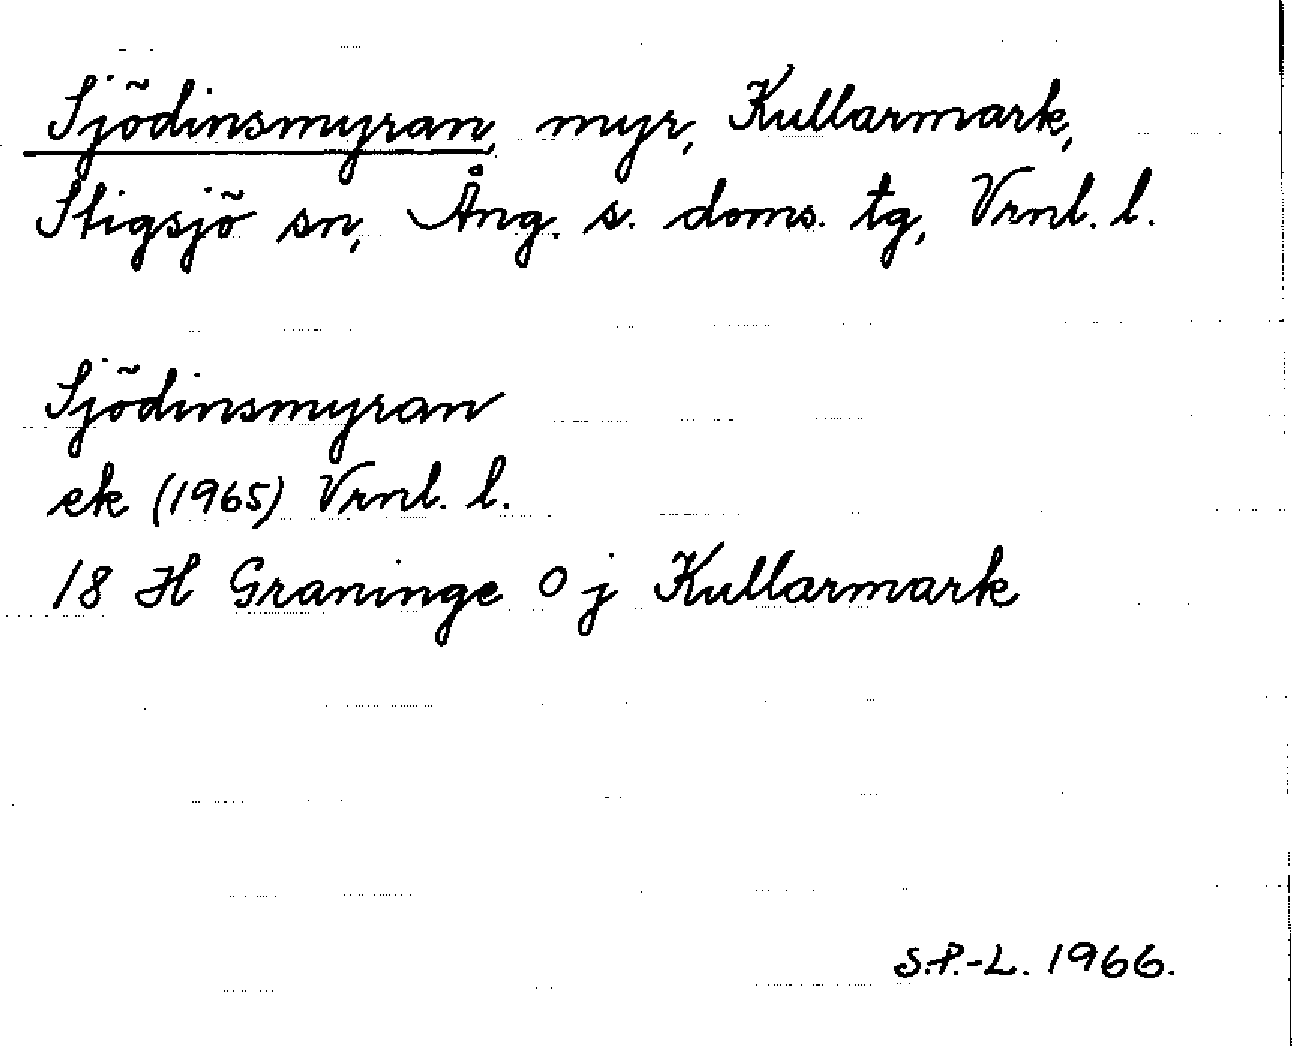 Sjödinsmyran, myr, Kullarmark,
Stigsjö sn, Ång. s. doms. tg, Vrnl. l.
Sjödinsmyran
ek (1965) Vrnl. l.
18 H Graninge O j Kullarmark
S.P.-L. 1966.